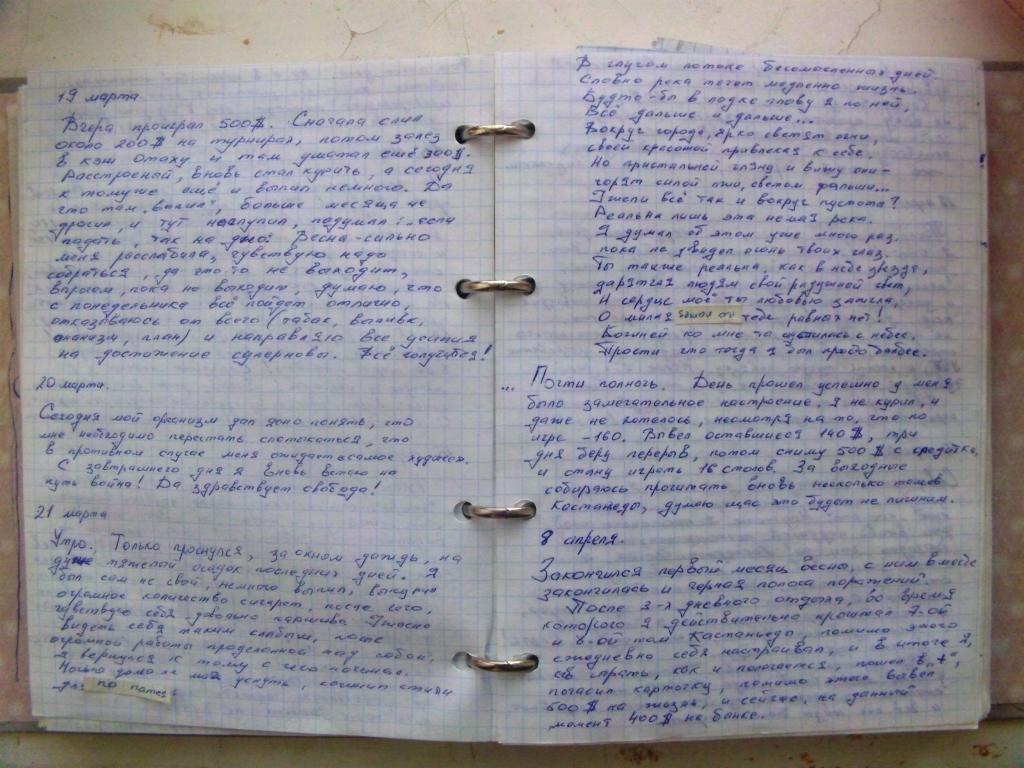 19 марта
Вчера проиграл 500$. Сначала слил
около 200$ на турнирах, потом залез
в кэш Омаху и там ушатал ещё 300$.
Расстроеный, вновь стал курить, а сегодня
к тому же ещё и выпил немного. Да
что там "выпил", больше месяца не
дрочил, и тут наступил, подумал: если
падать, так на дно. Весна-сильно
меня расслабила, чувствую надо
собраться, да что-то не выходит,
впрочем, пока не выходит, думаю, что
с понедельника всё пойдёт отлично,
отказываюсь от всего (табак, выпивк,
онанизм, план) и направляю все усилия
на достижение суперновы. Всё получится!
20 марта.
Сегодня мой организм дал ясно понять, что
мне необходимо перестать спотыкаться, что
в противном случае меня ожидает самое худшее.
С завтрашнего дня я вновь встаю на
путь война! Да здравствует свобода!
21 марта
Утро. Только проснулся, за окном дождь, на
душе тяжелый осадок последних дней. Я
был сам не свой, немного выпил, выкурил
огромное количество сигарет, после чего,
чувствую себя довольно паршиво. Ужасно
видеть себя таким слабым, после
огромной работы проделанной над собой,
я вернулся к тому с чего начинал.
Ночью долго не мог уснуть, сочинил стихи
для
В глухом потоке бессмысленных дней
Словно река течет медленно жизнь.
Будто-бы в лодке плыву я по ней,
Всё дальше и дальше...
Вокруг города, ярко светят огни,
своей красотой привлекая к себе.
Но пристальней гляну и вижу они-
горят силой лжи, светом фальши...
Ужели всё так и вокруг пустота?
Реальна лишь эта немая река.
Я думал об этом уже много раз.
пока не увидел огонь твоих глаз.
Ты также реальна, как в небе звезда,
дарящая людям свой радужный свет,
И сердце моё ты любовью зажгла,
О милая тебе равных нет!
Богиней ко мне ты спустилась с небес.
Прости что тогда я был правдо балбес.
... Почти полночь. День прошел успешно у меня
было замечательное настроение, я не курил, и
даже не хотелось, несмотря на то, что по
игре -160. Вывел оставшиеся 140$, три
дня беру перерыв, потом сниму 500$ с кредитки,
и стану играть 16 столов. За выходные
собираюсь прочитать вновь несколько томов
Кастанеды, думаю щас это будет не лишним.
8 апреля.
Закончился первый месяц весны, с ним вместе
закончилась и черная полоса поражений.
После 3-х дневного отдыха, во время
которого я действительно прочитал 7-ой
и 8-ой том Кастанеды, помимо этого
ежедневно себя настраивал, и в итоге я,
сев играть, как и полагается, пошел в "+",
погасил карточку, помимо этого вывел
500$ на жизнь, и сейчас, на данный
момент 400$ на банке.